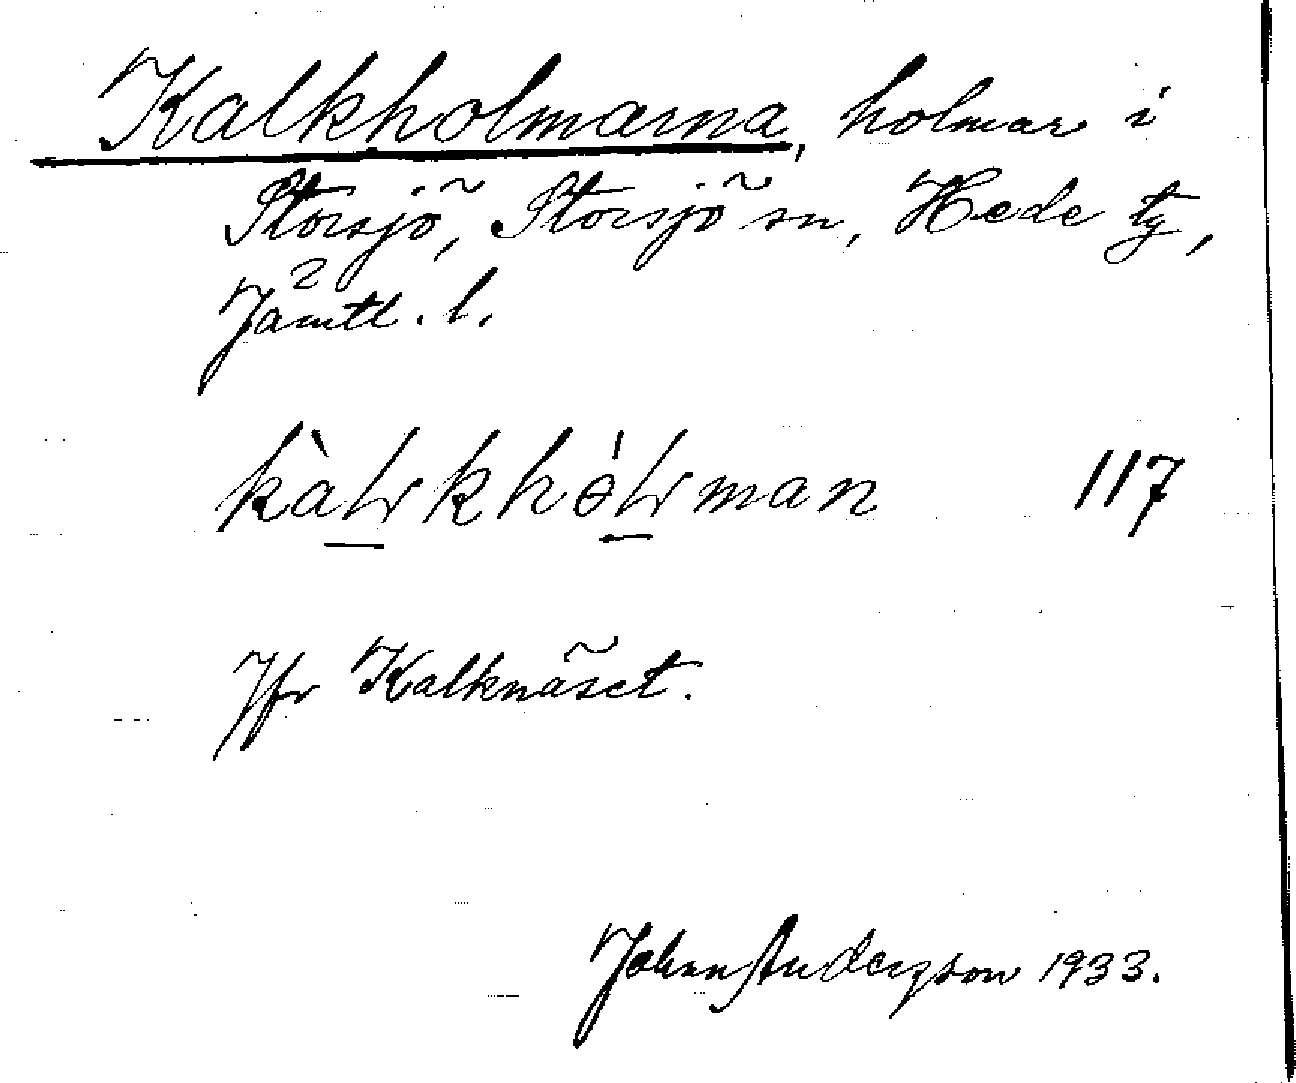 Kalkholmarna, holmar i
Storsjö, Storsjö sn, Hede tg,
Jämtl. l.
kàlrkhólrman 117
Jfr Kalknäset.
Johan Andersson 1933.